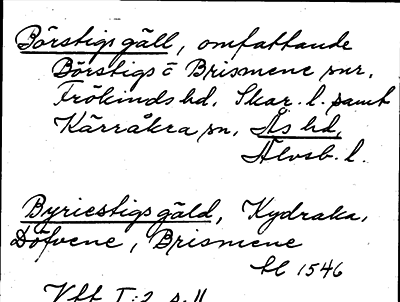 Börstigs gäll, omfattande
Börstigs o Brismene snr,
Frökinds hd, Skar. l. samt
Kärråkra sn, Ås hd,
Älvsb. l.
Byriestigs gäld, Kydraka,
Döfvene, Brismene
1546